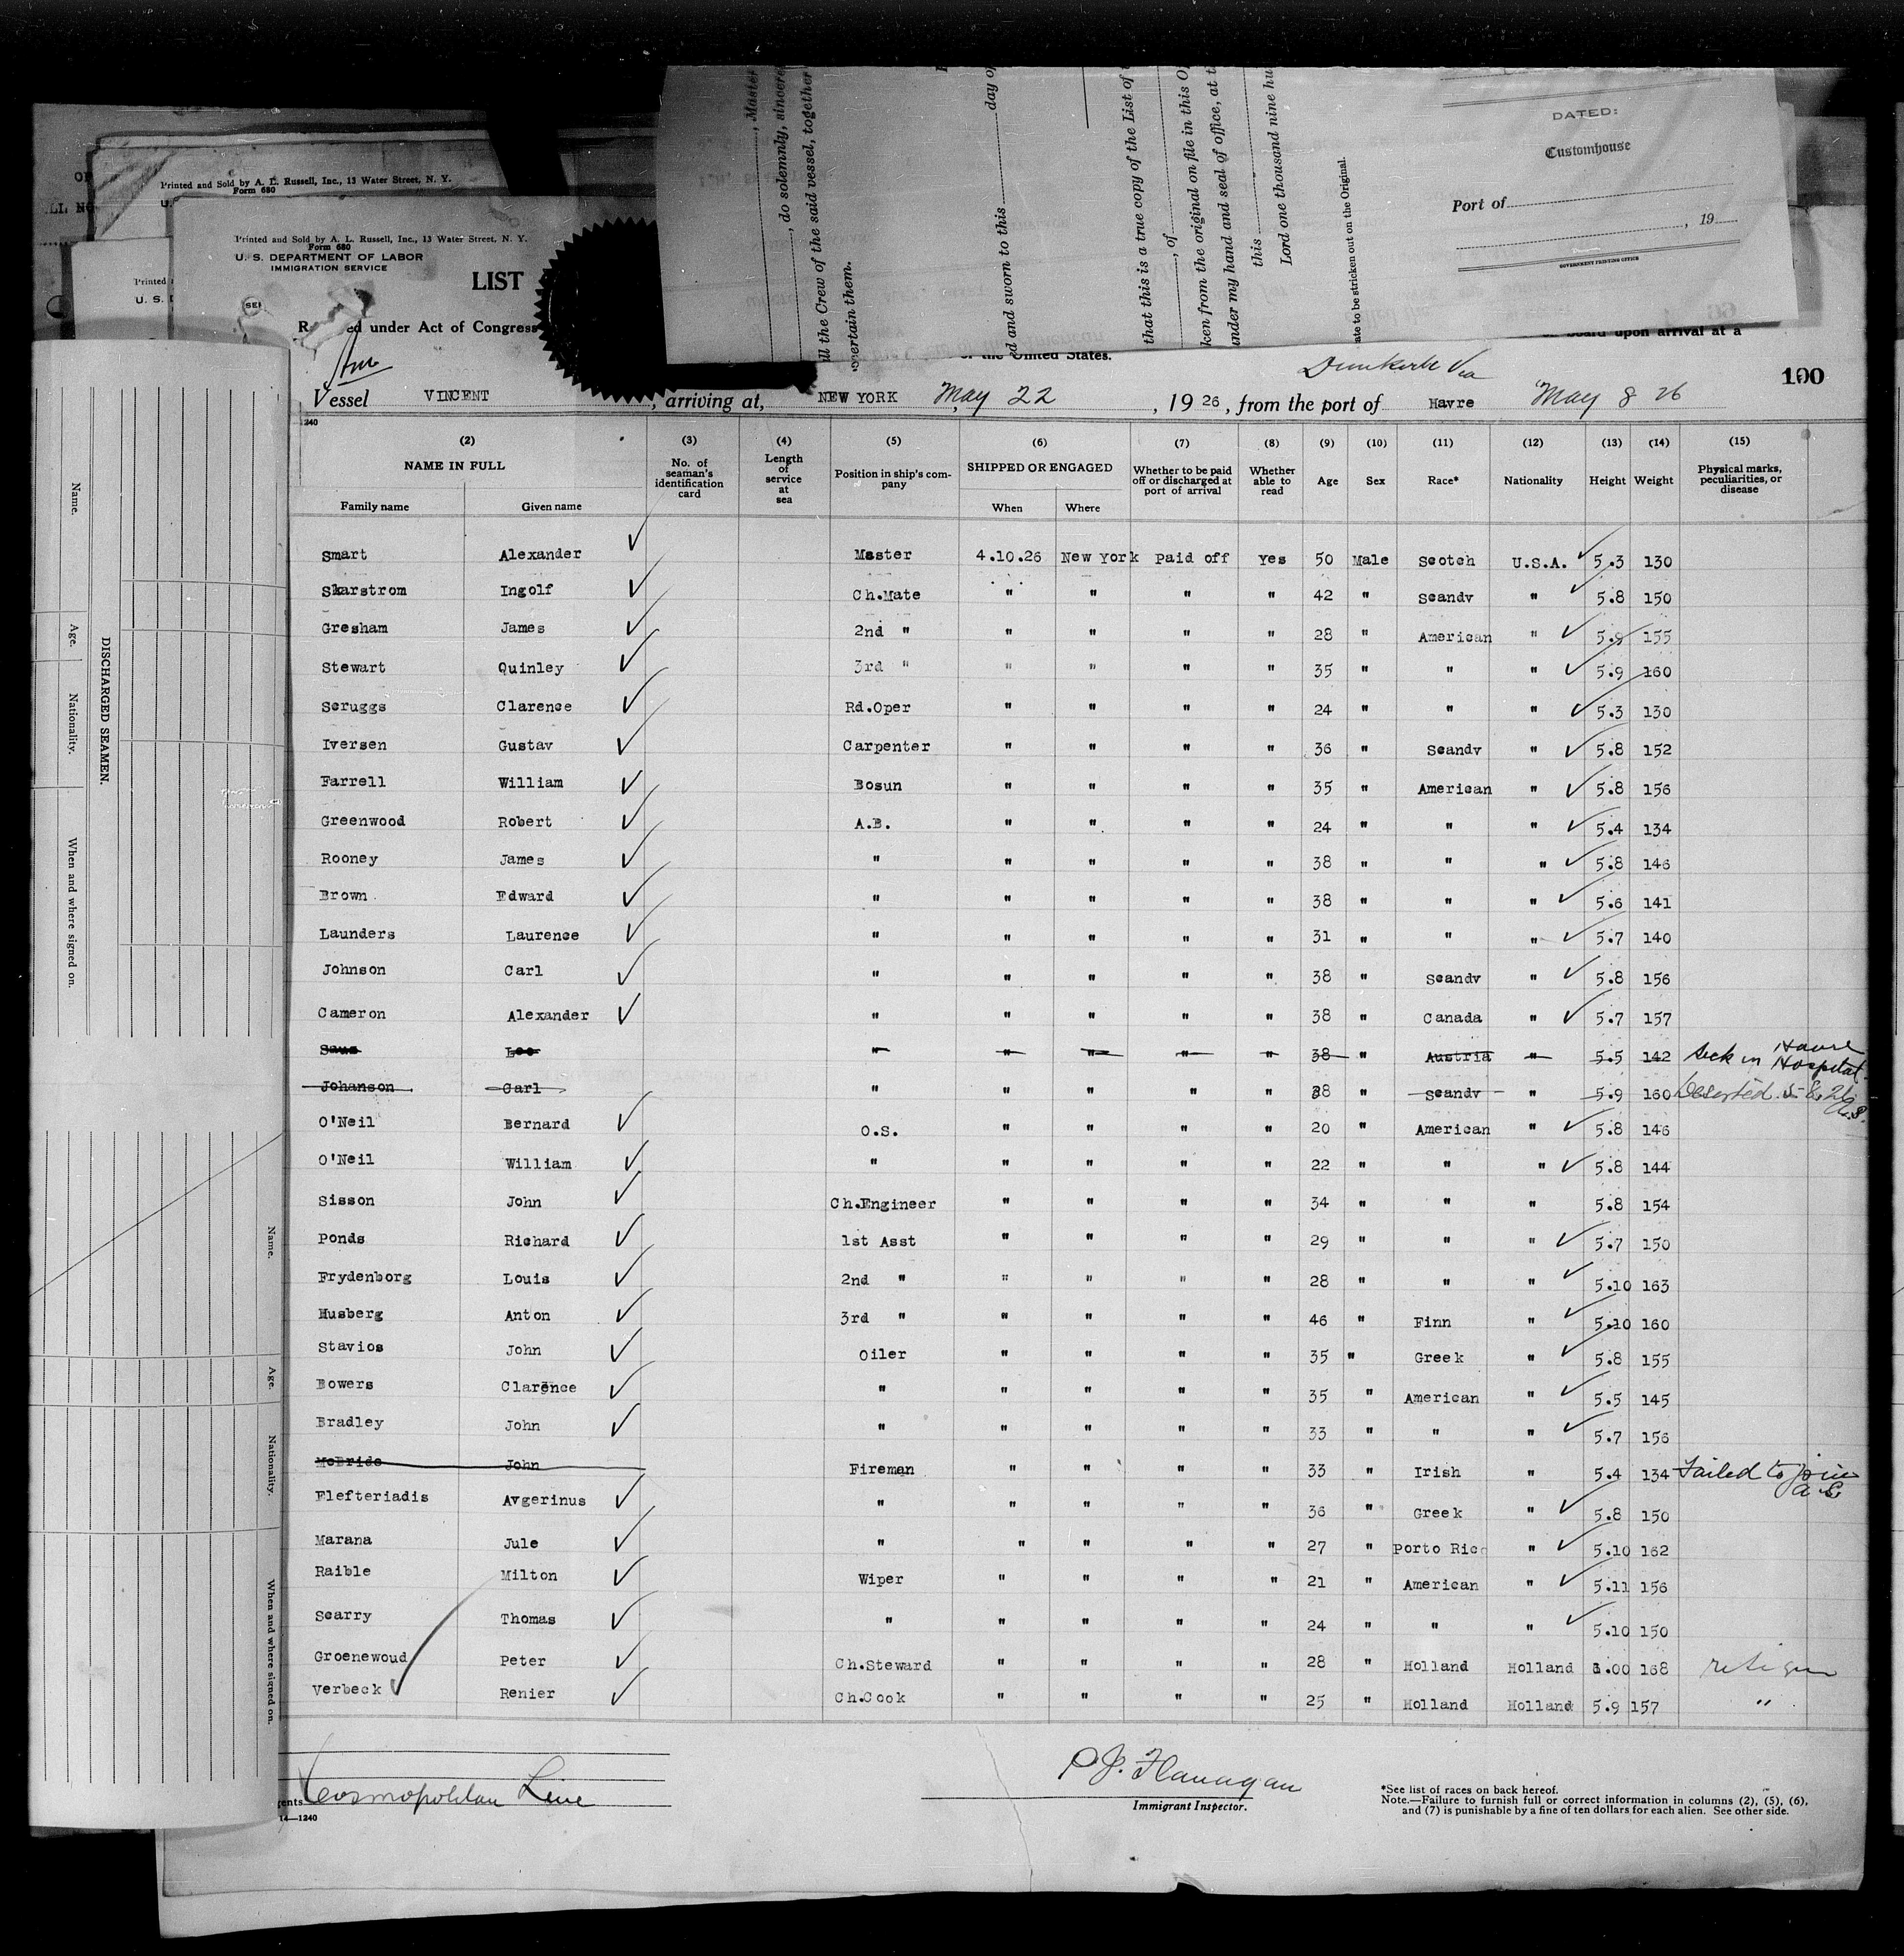 Printed and Sold by A. L. Russell, Inc., 13 Water Street, N. Y.
Form 680
Printed and Sold by A. L. Russell, Inc., 13 Water Street, N. Y.
Form 680
U. S. DEPARTMENT OF LABOR
IMMIGRATION SERVICE
LIST
under Act of Congress
board upon arrival at a
of the United States.
, Master
, do solemnly, sincere
ll the Crew of the said vessel, together
certain them.
d and sworn to this day of
that this is a true copy of the List of
, of
ken from the original on file in this Of
under my hand and seal of office, at t
this
Lord one thousand nine hu
ate to be stricken out on the Original.
DATED:
Customhouse
Port of
, 19
GOVERNMENT PRINTING OFFICE
100
Am
Dunkerk Via
Vessel VINCENT , arriving at, NEW YORK May 22 , 1926 , from the port of Havre May 8 26
1240
(2) (3) (4) (5) (6) (7) (8) (9) (10) (11) (12) (13) (14) (15)
NAME IN FULL No. of seaman's identification card Length of service at sea Position in ship's company SHIPPED OR ENGAGED Whether to be paid off or discharged at port of arrival Whether able to read Age Sex Race* Nationality Height Weight Physical marks, peculiarities, or disease
Family name Given name When Where
Smart Alexander Master 4.10.26 New York Paid off Yes 50 Male Scotch U.S.A. 5.3 130
Skarstrom Ingolf Ch.Mate " " " " 42 " Scandv " 5.8 150
Gresham James 2nd " " " " " 28 " American " 5.9 155
Stewart Quinley 3rd " " " " " 35 " " " 5.9 160
Scruggs Clarence Rd.Oper " " " " 24 " " " 5.3 130
Iversen Gustav Carpenter " " " " 36 " Scandv " 5.8 152
Farrell William Bosun " " " " 35 " American " 5.8 156
Greenwood Robert A.B. " " " " 24 " " " 5.4 134
Rooney James " " " " " 38 " " " 5.8 146
Brown Edward " " " " " 38 " " " 5.6 141
Launders Laurence " " " " " 31 " " " 5.7 140
Johnson Carl " " " " " 38 " Scandv " 5.8 156
Cameron Alexander " " " " " 38 " Canada " 5.7 157
Leo " " " " " 38 " Austria " 5.5 142 Sick in Havre Hospital
Johanson Carl " " " " " 38 " Scandv " 5.9 160 Deserted 5-8-26 A.S.
O'Neil Bernard O.S. " " " " 20 " American " 5.8 146
O'Neil William " " " " " 22 " " " 5.8 144
Sisson John Ch.Engineer " " " " 34 " " " 5.8 154
Ponds Richard 1st Asst " " " " 29 " " " 5.7 150
Frydenborg Louis 2nd " " " " " 28 " " " 5.10 163
Husberg Anton 3rd " " " " " 46 " Finn " 5.10 160
Stavios John Oiler " " " " 35 " Greek " 5.8 155
Bowers Clarence " " " " " 35 " American " 5.5 145
Bradley John " " " " " 33 " " " 5.7 156
McBride John Fireman " " " " 33 " Irish " 5.4 134 Failed to join A.S.
Elefteriadis Avgerinus " " " " " 36 " Greek " 5.8 150
Marana Jule " " " " " 27 " Porto Rico " 5.10 162
Raible Milton Wiper " " " " 21 " American " 5.11 156
Scarry Thomas " " " " " 24 " " " 5.10 150
Groenewoud Peter Ch.Steward " " " " 28 " Holland Holland 6.00 168
Verbeck Renier Ch.Cook " " " " 25 " Holland Holland 5.9 157 "
Cosmopolitan Line
14—1240
P. J. Flanagan
Immigrant Inspector.
*See list of races on back hereof.
Note.—Failure to furnish full or correct information in columns (2), (5), (6),
and (7) is punishable by a fine of ten dollars for each alien. See other side.
DISCHARGED SEAMEN.
Name.
Age.
Nationality.
When and where signed on.
Name.
Age.
Nationality.
When and where signed on.